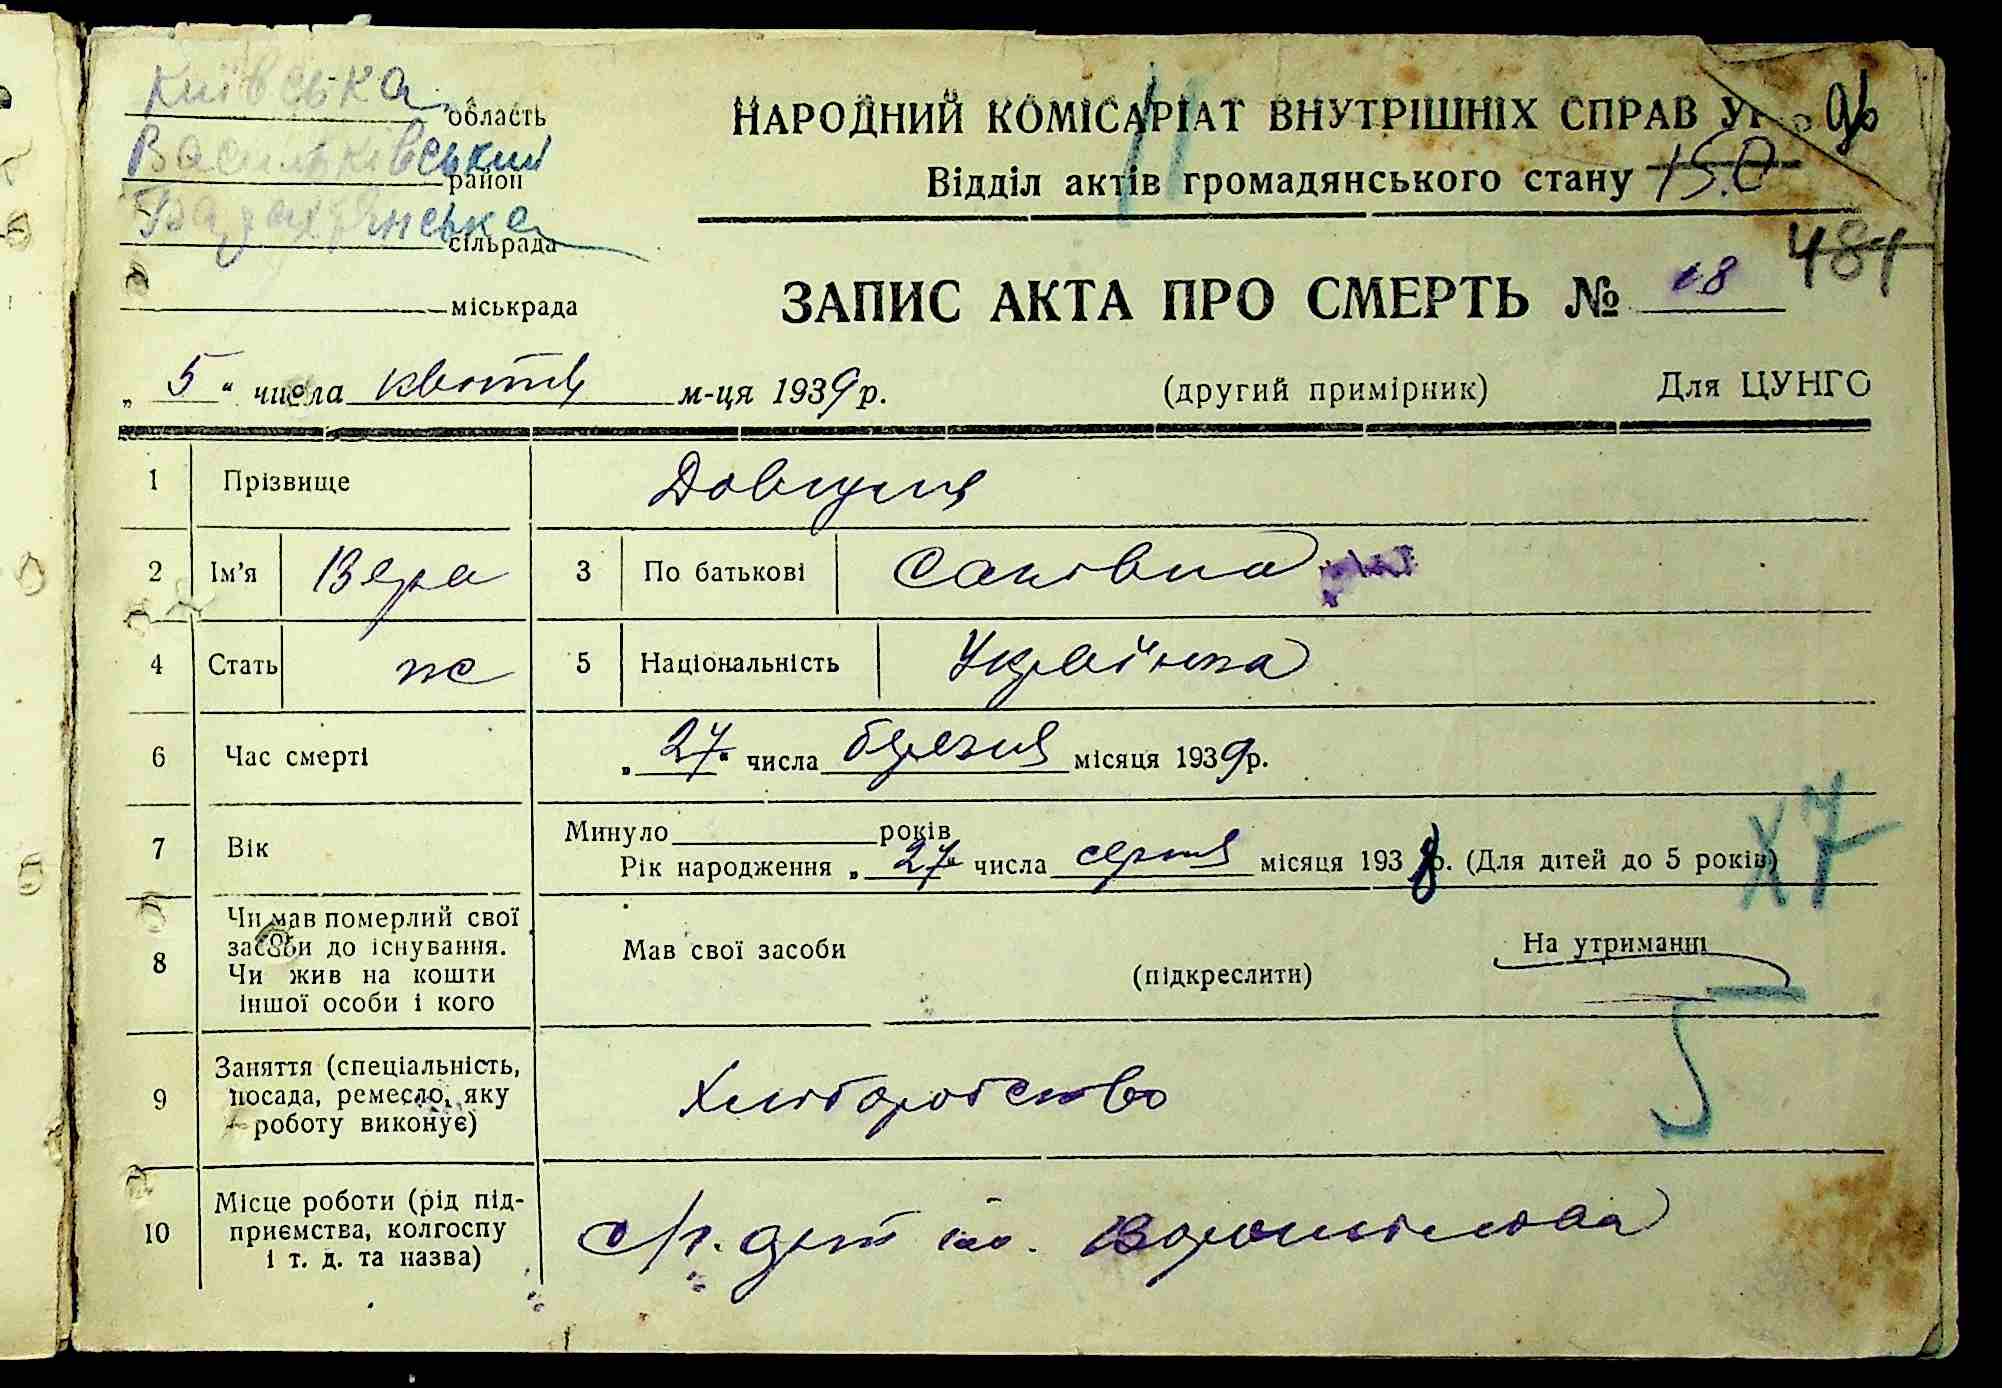 Київська область
Васильківський район
сільрада
міськрада
НАРОДНИЙ КОМІСАРІАТ ВНУТРІШНІХ СПРАВ
Відділ актів громадянського стану 150
ЗАПИС АКТА ПРО СМЕРТЬ № 18 484
„5“ числа квітня м-ця 1939 р. (другий примірник) Для ЦУНГО
1 Прізвище
2 Ім'я Вера 3 По батькові Саківна
4 Стать ж 5 Національність Українка
6 Час смерті „27“ числа березня місяця 1939 р.
7 Вік Минуло років
Рік народження „27“ числа серпня місяця 1938 р. (Для дітей до 5 років)
Х7
8 Чи мав померлий свої засоби до існування. Чи жив на кошти іншої особи і кого Мав свої засоби (підкреслити) На утриманні
5
9 Заняття (спеціальність, посада, ремесло, яку роботу виконує) Хліборобство
10 Місце роботи (рід під-
приємства, колгоспу
і т. д. та назва) с/г. арт ім. Ворошилова